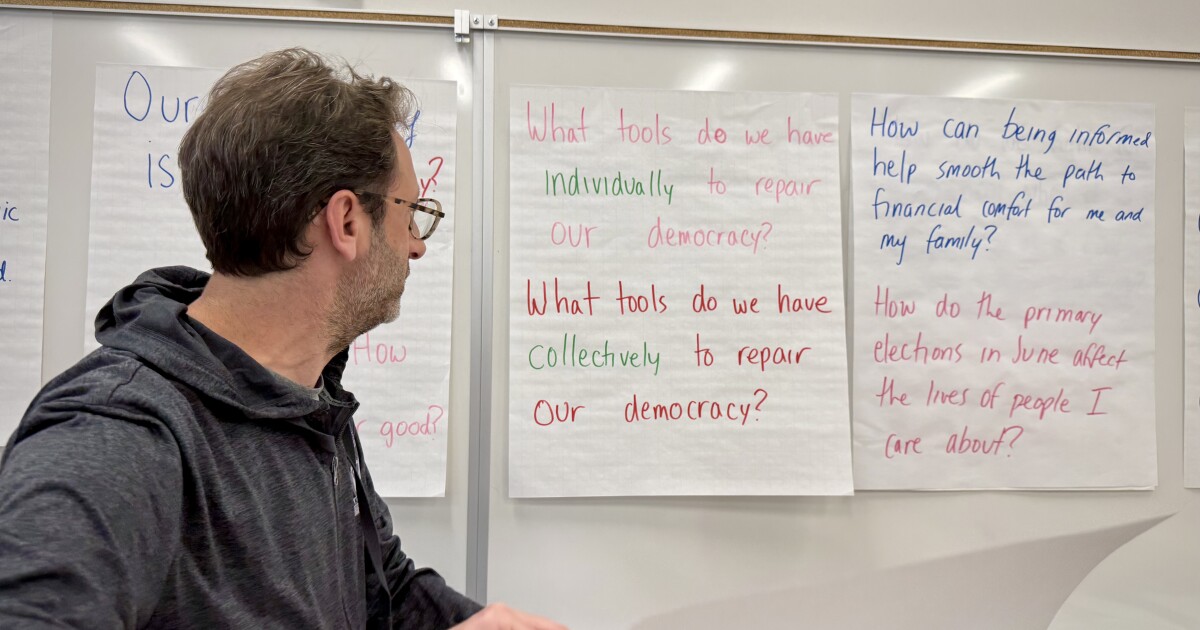 ic
d.
Our
is
y?
How
good?
What tools do we have
individually to repair
our democracy?
What tools do we have
collectively to repair
our democracy?
How can being informed
help smooth the path to
financial comfort for me and
my family?
How do the primary
elections in June affect
the lives of people I
care about?